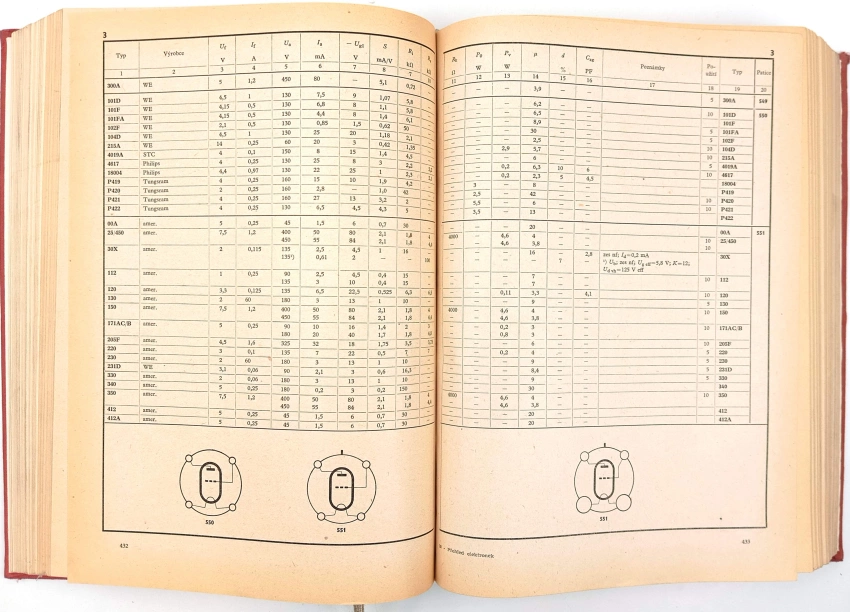 3
Typ Výrobce Uf If Ua Ia — Ug1 S Ri
V A V mA V mA/V kΩ kΩ
1 2 3 4 5 6 7 8
300A WE 5 1,2 450 80 — 5,1 0,72
101D WE 4,5 1 130 7,5 9 1,07 5,8
101F WE 4,15 0,5 130 6,8 8 1,1 5,8
101FA WE 4,15 0,5 130 4,4 8 1,4 6,1
102F WE 2,1 0,5 130 0,85 1,5 0,62 50
104D WE 4,5 1 130 25 20 1,18 2,1
215A WE 14 0,25 60 20 3 0,42 1,35
4019A STC 4 0,1 150 8 15 1,4 4,5
4617 Philips 4 0,25 130 25 8 3 2,2
18004 Philips 4,4 0,97 130 22 25 1 2,5
P419 Tungsram 4 0,25 160 15 10 1,9 4,2
P420 Tungsram 2 0,25 160 2,8 — 1,0 42
P421 Tungsram 4 0,25 160 27 13 3,2 2
P422 Tungsram 4 0,25 130 6,5 4,5 4,3 5
00A amer. 5 0,25 45 1,5 6 0,7 30
25/450 amer. 7,5 1,2 400 50 80 2,1 1,8
450 55 84 2,1 1,8
30X amer. 2 0,115 135 2,5 4,5 1 16
135¹) 0,61 2 — —
112 amer. 1 0,25 90 2,5 4,5 0,4 15
135 3 10 0,4 15
120 amer. 3,3 0,125 135 6,5 22,5 0,525 6,3
130 amer. 2 60 180 3 13 1 10
150 amer. 7,5 1,2 400 50 80 2,1 1,8
450 55 84 2,1 1,8
171AC/B amer. 5 0,25 90 10 16 1,4 2
180 20 40 1,7 1,8
205F amer. 4,5 1,6 325 32 18 1,75 3,5
220 amer. 3 0,1 135 7 22 0,5 7
230 amer. 2 60 180 3 13 1 10
231D WE 3,1 0,06 90 2,1 3 0,6 16,3
330 amer. 2 0,06 180 3 13 1 10
340 amer. 5 0,25 180 0,2 3 0,2 150
350 amer. 7,5 1,2 400 50 80 2,1 1,8
450 55 84 2,1 1,8
412 amer. 5 0,25 45 1,5 6 0,7 30
412A amer. 5 0,25 45 1,5 6 0,7 30
550
551
432
3
Pg Pv μ d Cag Poznámky Typ Patice
Ω W W % PF
11 12 13 14 15 16 17 18 19 20
— — — 3,9 — — 5 300A 549
— — — 6,2 — — 10 101D 550
— — — 6,5 — — 101F
— — — 8,9 — — 5 101FA
— — — 30 — — 5 102F
— — — 2,5 — — 10 104D
— — 2,9 5,7 — — 10 215A
— — — 6 — — 5 4019A
— — 0,2 6,3 10 6 10 4617
— — 0,2 2,3 5 4,5 18004
— 3 — 8 — — P419
— 2,5 — 42 — — 10 P420
— 5,5 — 6 — — 10 P421
— 3,5 — 13 — — P422
— — — 20 — — 00A 551
4000 — 4,6 4 — — 10 25/450
— — 4,6 3,8 — — 10
— — — 16 — 2,8 30X
— — — — 7
— — — 7 — — 10 112
— — — 7 — —
— — 0,11 3,3 — 4,1 10 120
— — — 9 — — 5 130
4000 — 4,6 4 — — 10 150
— — 4,6 3,8 — —
— — 0,2 3 — — 10 171AC/B
— — 0,8 3 — —
— — — 6 — — 10 205F
— — 0,2 4 — — 5 220
— — — 9 — — 5 230
— — — 8,4 — — 5 231D
— — — 9 — — 5 330
— — — 30 — — 340
4000 — 4,6 4 — — 10 350
— — 4,6 3,8 — —
— — — 20 — — 412
— — — 20 — — 412A
551
Přehled elektronek
433